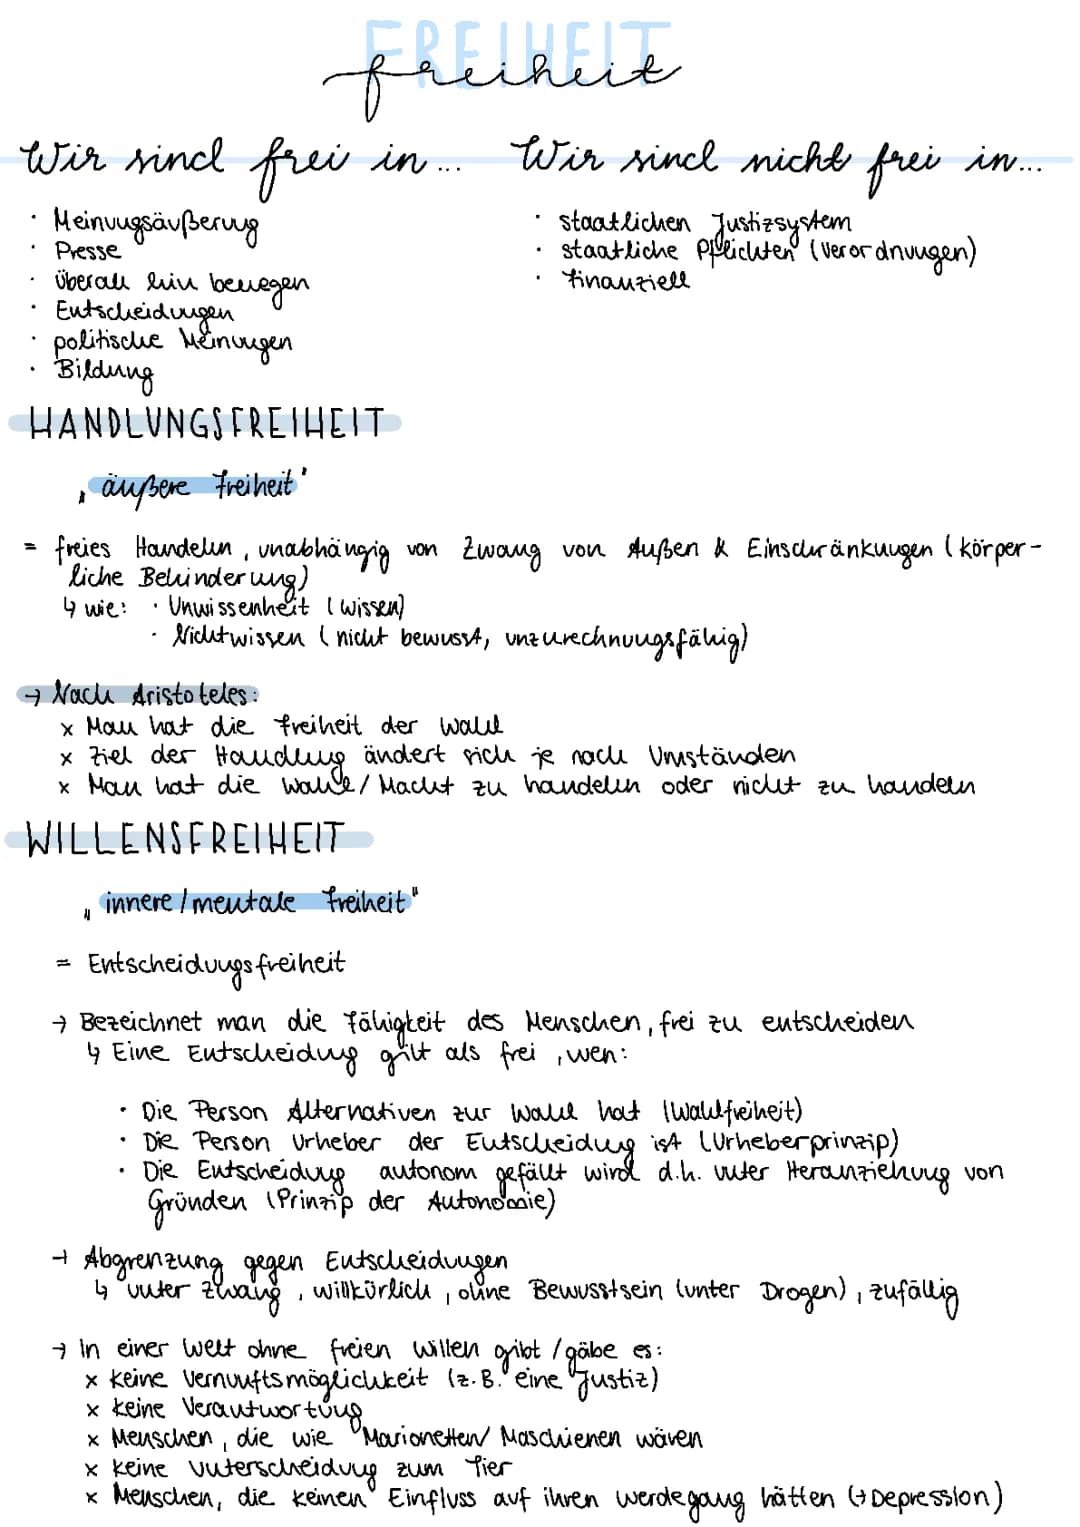 FREIHEIT
freiheit
Wir sind frei in... Wir sind nicht frei in...
· Meinungsäußerung
· Presse
· überall hin bewegen
· Entscheidungen
· politische Meinungen
· Bildung
· staatlichen Justizsystem
· staatliche Pflichten (Verordnungen)
· finanziell
HANDLUNGSFREIHEIT
, äußere Freiheit'
= freies Handeln, unabhängig von Zwang von Außen & Einschränkungen (körper-
liche Behinderung)
↳ wie: · Unwissenheit (wissen)
· Nichtwissen (nicht bewusst, unzurechnungsfähig)
→ Nach Aristoteles:
x Man hat die Freiheit der Wahl
x Ziel der Handlung ändert sich je nach Umständen
x Man hat die Wahl/Macht zu handeln oder nicht zu handeln
WILLENSFREIHEIT
„innere/mentale Freiheit"
= Entscheidungsfreiheit
→ Bezeichnet man die Fähigkeit des Menschen, frei zu entscheiden
↳ Eine Entscheidung gilt als frei, wen:
· Die Person Alternativen zur Wahl hat (Wahlfreiheit)
· Die Person Urheber der Entscheidung ist (Urheberprinzip)
· Die Entscheidung autonom gefällt wird d.h. unter Heranziehung von
Gründen (Prinzip der Autonomie)
→ Abgrenzung gegen Entscheidungen
↳ unter Zwang, willkürlich, ohne Bewusstsein (unter Drogen), zufällig
→ In einer Welt ohne freien Willen gibt/gäbe es:
x keine Vernunftsmöglichkeit (z.B. eine Justiz)
x keine Verantwortung
x Menschen, die wie Marionetten/Maschienen wären
x keine Unterscheidung zum Tier
x Menschen, die keinen Einfluss auf ihren Werdegang hätten (→Depression)